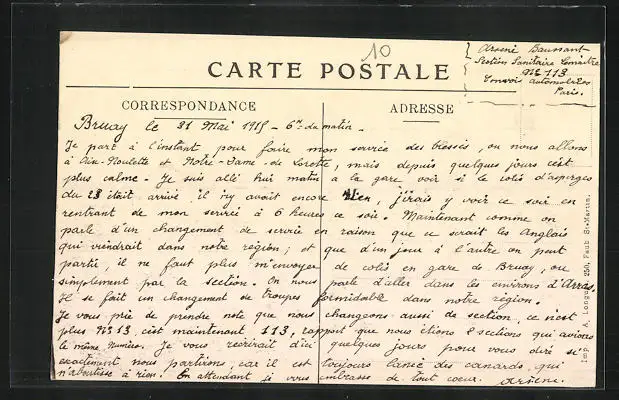 10
Arsene Baussant
Section Sanitaire
N° 113
Convois automobiles
Paris.
CARTE POSTALE
CORRESPONDANCE
ADRESSE
Bruay le 31 Mai 1915 - 6h du matin -
Je part à l'instant pour faire mon service des blessés, ou nous allons
à Aix-Noulette et Notre-Dame-de Lorette, mais depuis quelques jours c'est
plus calme. Je suis allé hier matin a la gare voir si le colis d'asperges
du 28 était arrivé, il n'y avait encore rien, j'irais y voir ce soir en
rentrant de mon service à 6 heures ce soir. Maintenant comme on
parle d'un changement de service en raison que ce serait les Anglais
qui viendrait dans notre région; et que d'un jour à l'autre on peut
partir, il ne faut plus m'envoyer de colis en gare de Bruay, ou
simplement par la section. On nous parle d'aller dans les environs d'Arras.
Il se fait un changement de troupes formidable dans notre région.
Je vous prie de prendre note que nous changeons aussi de section, ce n'est
plus N° 13, c'est maintenant 113, rapport que nous étions 2 sections qui avions
le même Numéro. Je vous récrirait d'ici quelques jours pour vous dire si
exactement nous partirons, car il est toujours lancé des canards, qui
n'aboutisse à rien. En attendant je vous embrasse de tout coeur. Arsène.
Imp. A. Longuet, 250, Faub. St-Martin.